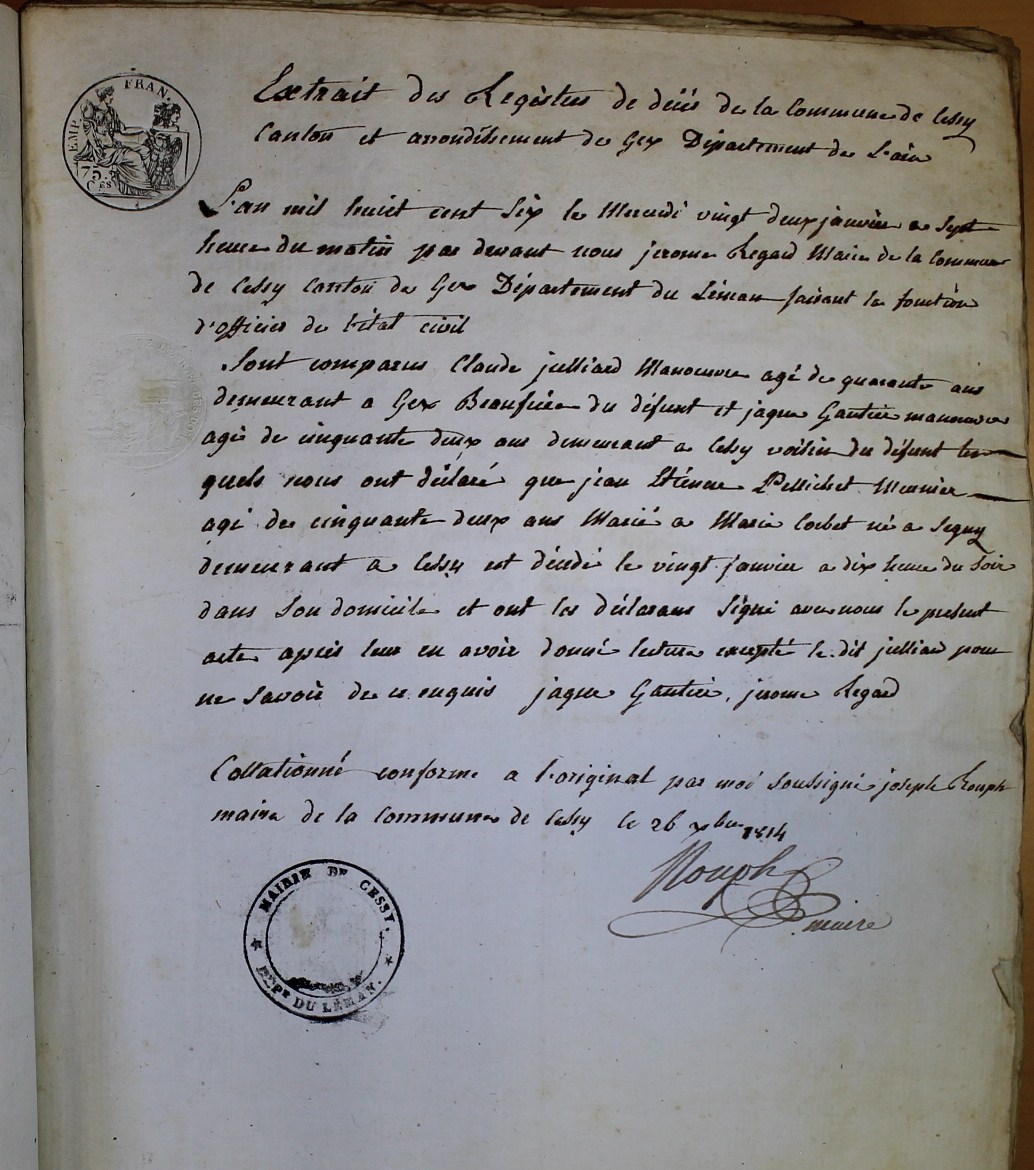 EMP. FRAN.
75. CES
Extrait des Registres de décés de la Commune de Cessy
Canton et arrondissement de Gex Département de l'ain
L'an mil huict cent six le Mercredi vingt deux janvier a sept
heure du matin par devant nous jerome Regard Maire de la Commune
de Cessy Canton de Gex Département du Léman faisant la fonction
d'officier de l'état civil
Sont comparus Claude julliard Manoeuvre agé de quarante ans
demeurant a Gex Beaufrere du défunt et jaque Gautier manoeuvre
agé de cinquante deux ans demeurant a Cessy voisin du défunt les
quels nous ont déclaré que jean Etienne Pellichet Meunier
agé de cinquante deux ans Marié a Marie Corbet né a Segny
demeurant a Cessy est décédé le vingt janvier a dix heure du soir
dans son domicile et ont les déclarans signé avec nous le présent
acte après leur en avoir donné lecture excepté le dit julliard pour
ne savoir de ce enquis jaque Gautier, jerome Regard
Collationné conforme a l'original par moi soussigné joseph Rouph
maire de la Commune de Cessy le 26 xbre 1814
Rouph
maire
MAIRIE DE CESSY.
DÉPT DU LÉMAN.